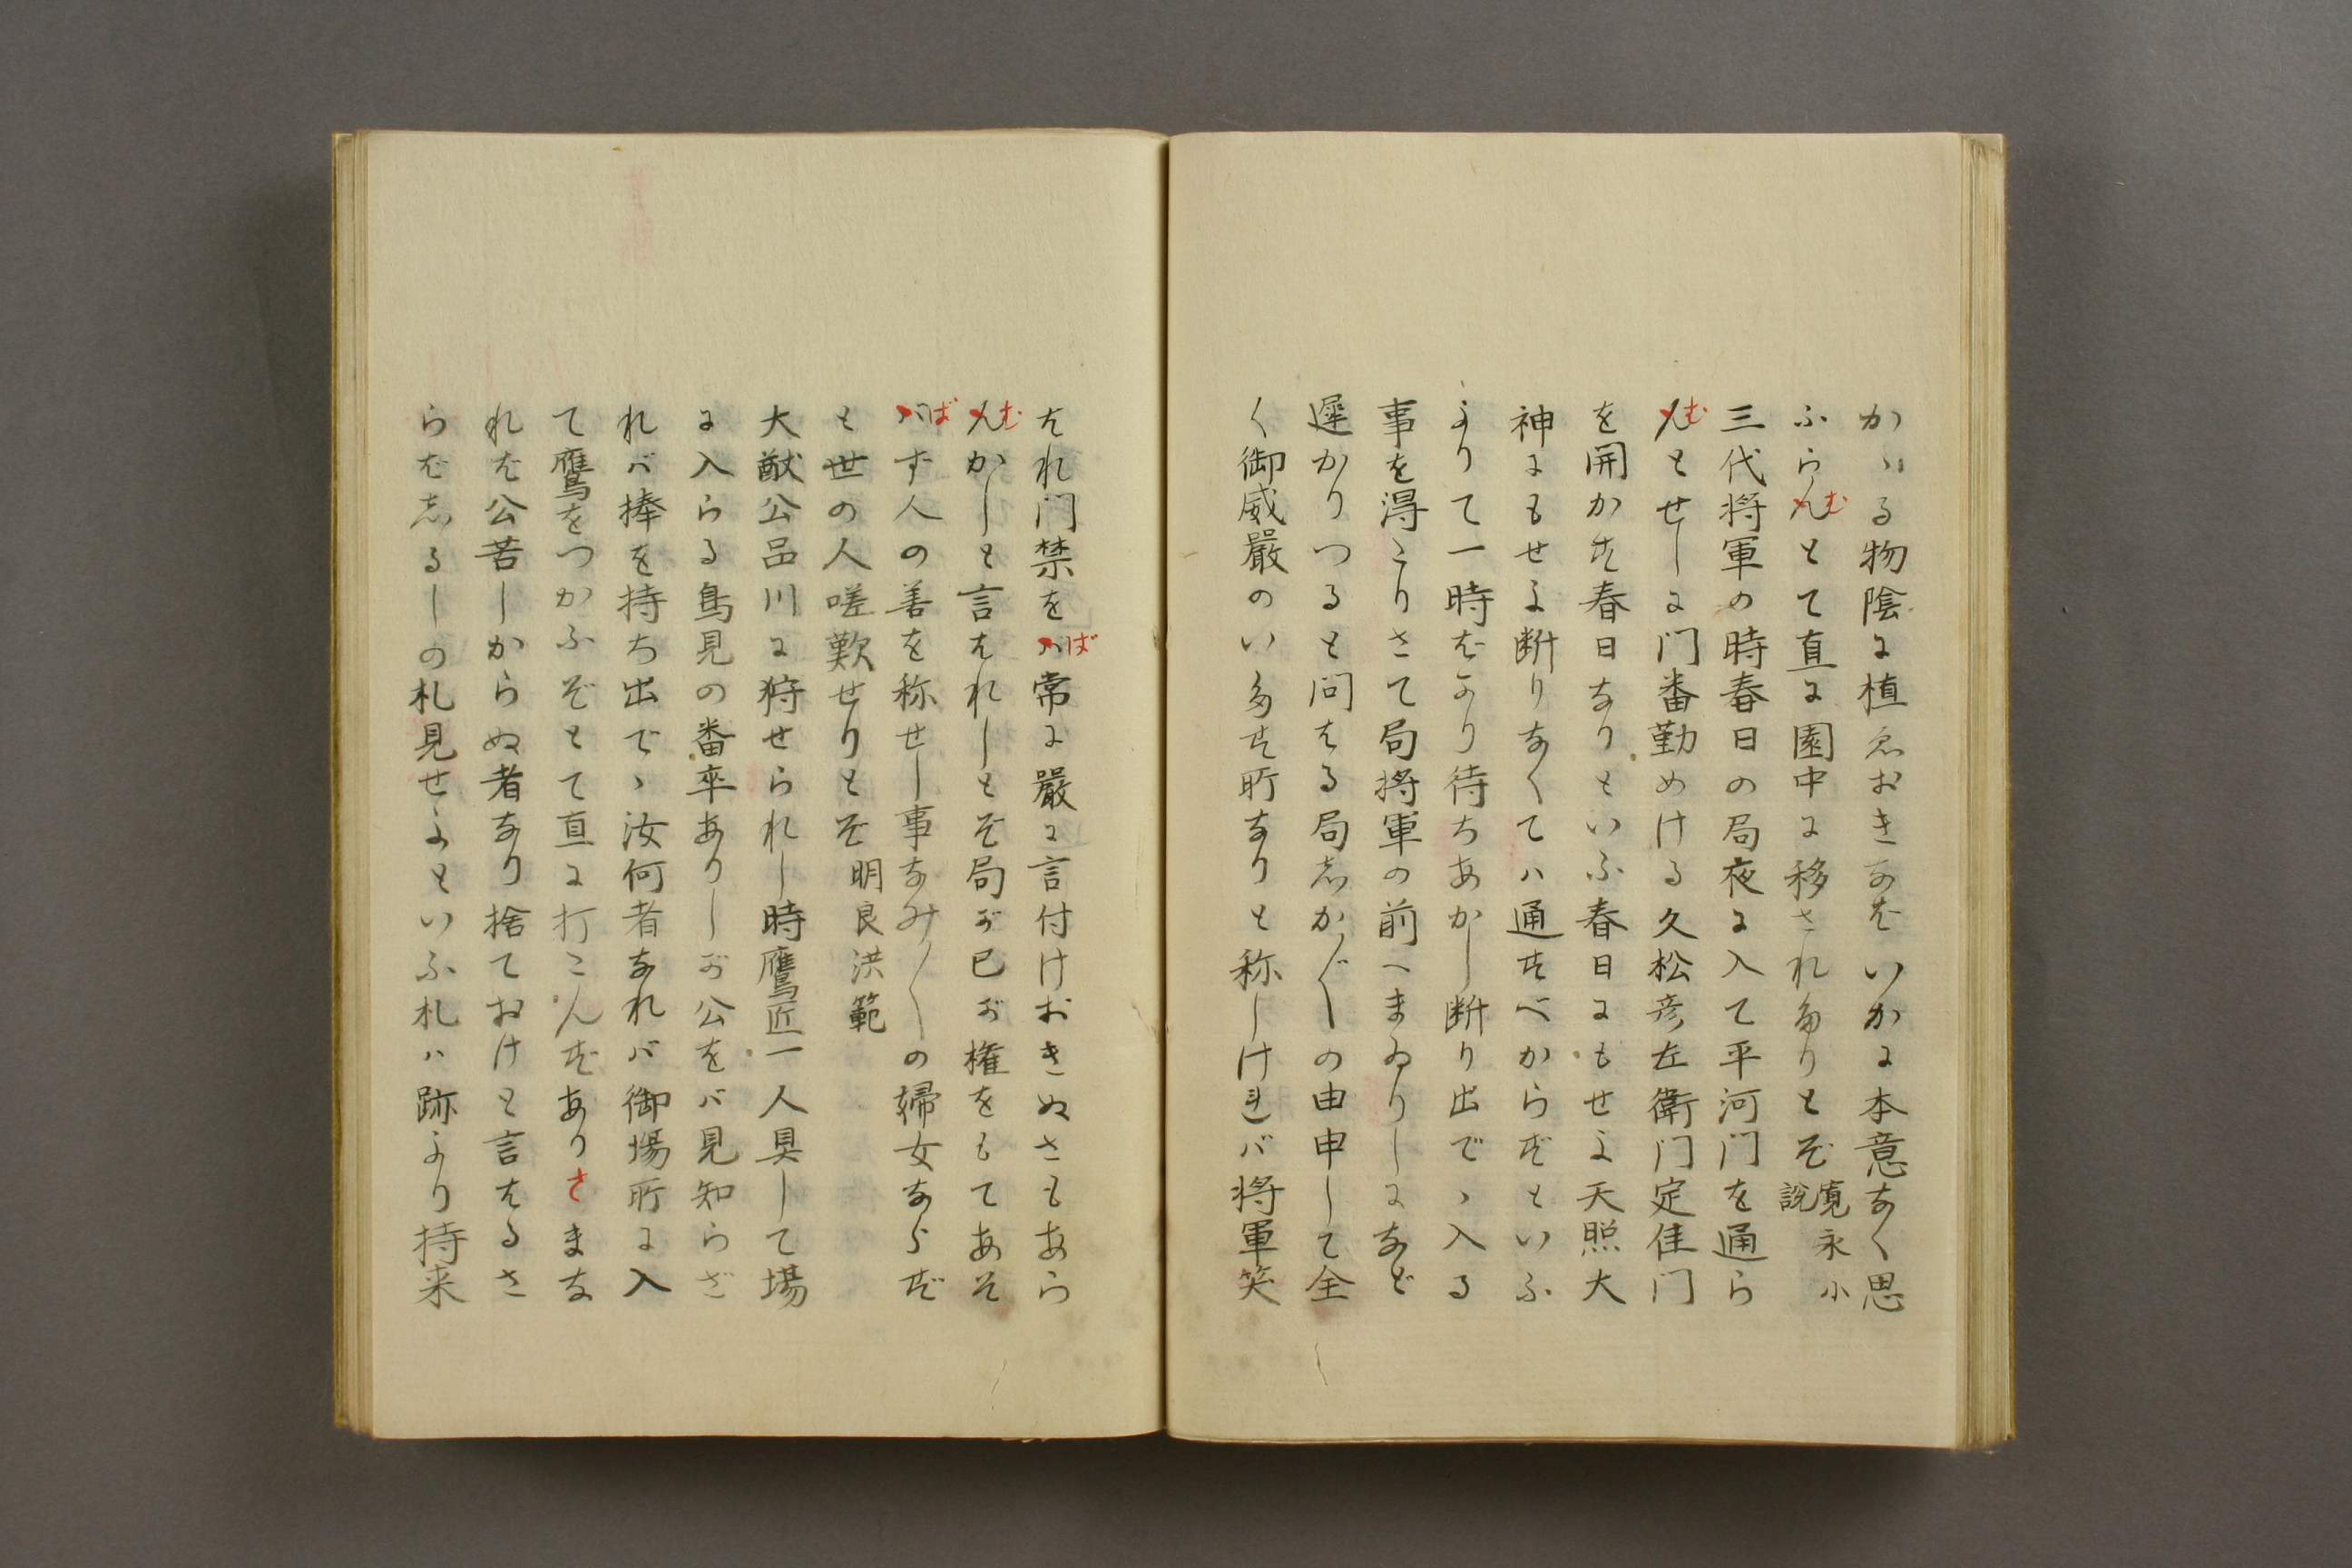 かゝる物陰に植ゑおきなばいかに本意なく思
ふらむとて直に園中に移されたりとぞ寛永小説
三代将軍の時春日の局夜に入て平河門を通ら
むとせしに門番勤めける久松彦左衛門定佳門
を開かず春日なりといふ春日にもせよ天照大
神にもせよ断りなくてハ通すべからずといふ
よりて一時ばかり待ちあかし断り出でゝ入る
事を得たりさて局将軍の前へまゐりしになど
遅かりつると問はる局しか〴〵の由申して全
く御威厳のいたす所なりと称しけれバ将軍笑
はれ門禁をば常に厳に言付けおきぬさもあら
むかしと言はれしとぞ局が己が権をもてあそ
ばず人の善を称せし事なみ〳〵の婦女ならず
と世の人嗟歎せりとぞ明良洪範
大猷公品川に狩せられし時鷹匠一人具して場
に入らる鳥見の番卒ありしが公をバ見知らざ
れバ捧を持ち出でゝ汝何者なれバ御場所に入
て鷹をつかふぞとて直に打こんずありさまな
れば公苦しからぬ者なり捨ておけと言はるさ
らばしるしの札見せよといふ札ハ跡より持来